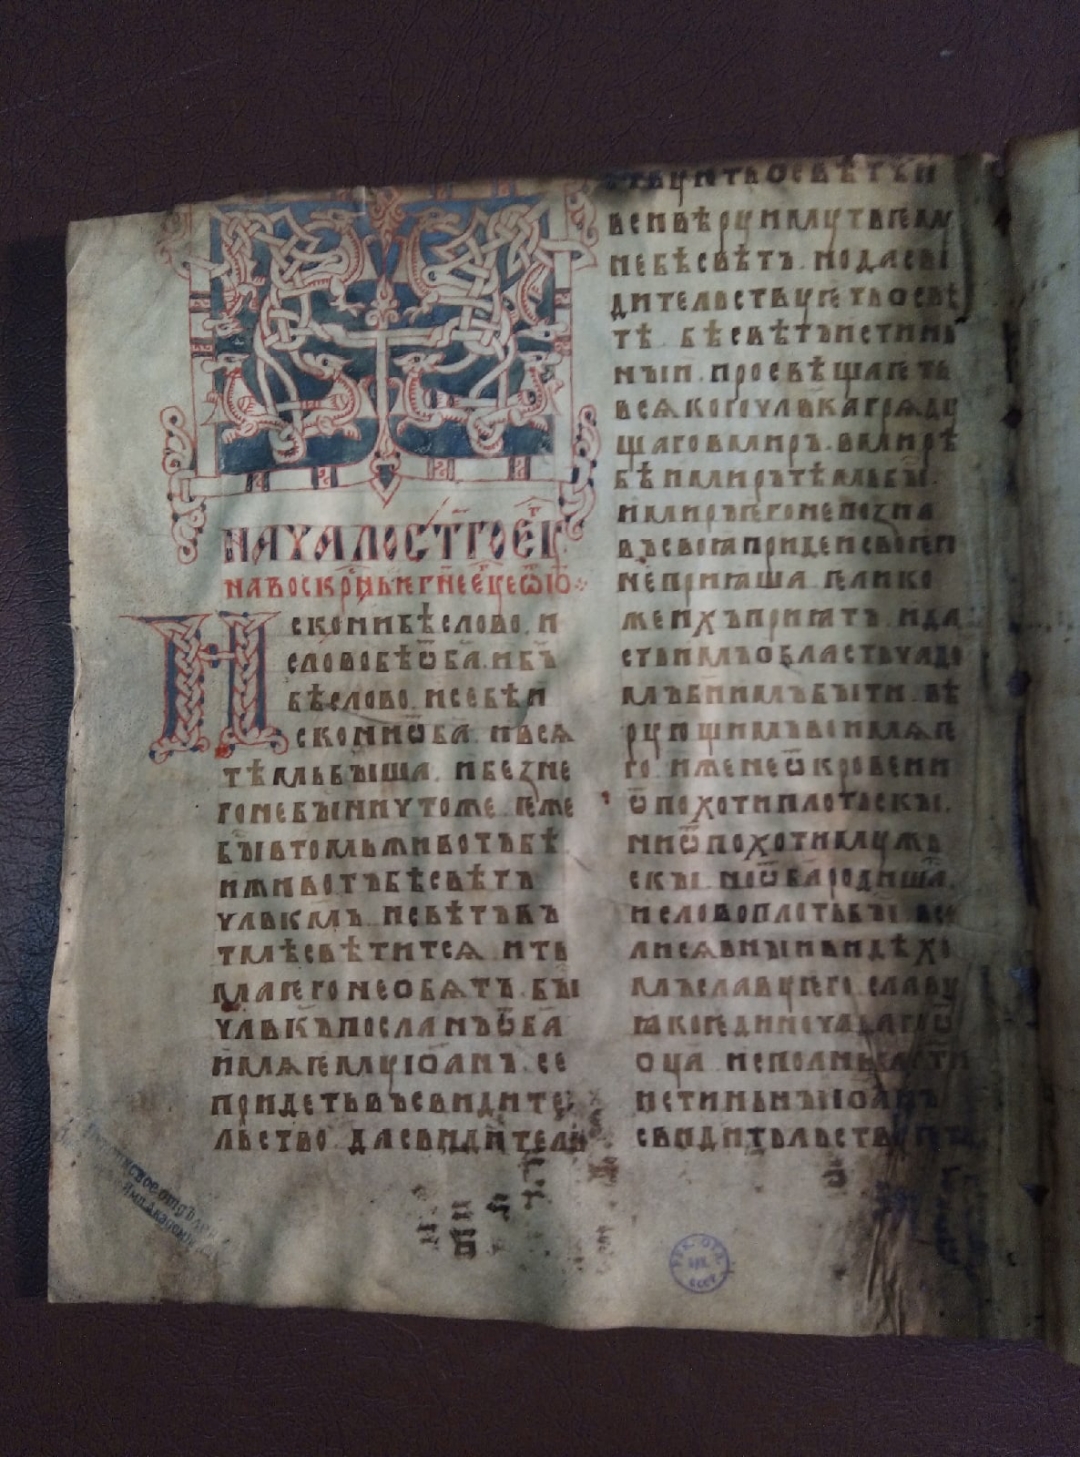 НАЧАЛОСТ҃ГОЕѴ҃Г
НАВОСКРⷭ҇НЬꙖГН҃ЕЕѴ҃ГЕѠТІѠ
ИСКОНИБѢСЛОВО. И
СЛОВОБѢѾБА҃. ИБЪ҃
БѢСЛОВО. ИСЕБѢИ
СКОНИѾБА҃. ИВСѦ
ТѢМЬБЫША. ИБЕЗНЕ
ГОНЕБЫНИЧТОЖЕ. ѤЖЕ
БЫ҃ВТОМЬЖИВОТЪБѢ.
ИЖИВОТЪБѢСВѢТЪ
ЧЛВ҃КМЪ. ИСВѢТЪВЪ
ТМѢСВѢТИТСѦ. ИТЬ
МАѤГОНЕОБѦТЪ. БЫ҃
ЧЛВ҃КЪПОСЛАНЪѾБА҃
ИМѦѤМУІОАНЪ. СЕ
ПРИДЕТЬВЪСВИДИТЕ
ЛЬСТВО. ДАСВИДИТЕЛЬ
СТВУѤТЬОСВѢТѢИ
ВСИВѢРУИМУТЬѤМУ
НЕБѢСВѢТЪ. НОДАСВИ
ДИТЕЛЬСТВУѤТЬОСВѢ
ТѢ. БѢСВѢТЪИСТИНЬ
НЫИ. ПРОСВѢЩАѤТЬ
ВСѦКОГОЧЛВ҃КАГРѦДУ
ЩАГОВМИРЪ. ВМИРѢ
БѢИМИРЪТѢМЬБЫ҃.
ИМИРЪѤГОНЕПОЗНА
ВЪСВОꙖПРИДЕИСВОИѤГО
НЕПРИꙖША. ѤЛИКО
ЖЕИХЪПРИꙖТЪ. ИДА
СТЬИМЪОБЛАСТЬЧАДО
МЪБ҃ИИМЪБЫТИ. ВѢ
РУЮЩИМЪВОИМѦѤ
ГО. ИЖЕНЕѾКРОВЕНИ
ѾПОХОТИПЛОТЬСКЫ.
НИѾПОХОТИМУЖЬ
СКЫ. НОѾБА҃РОДИШАСѦ.
ИСЛОВОПЛОТЬБЫ҃. ВСЕ
ЛИСѦВНЫИВИДѢХО
МЪСЛАВУѤГО. СЛАВУ
ꙖКОѤДИНОЧАДАГОѾ
ОЦ҃А. ИСПОЛНЬБЛ҃ГТИ
ИСТИНЬНЫІОАНЪ
СВИДИТЬЛЬСТВУѤТЬ